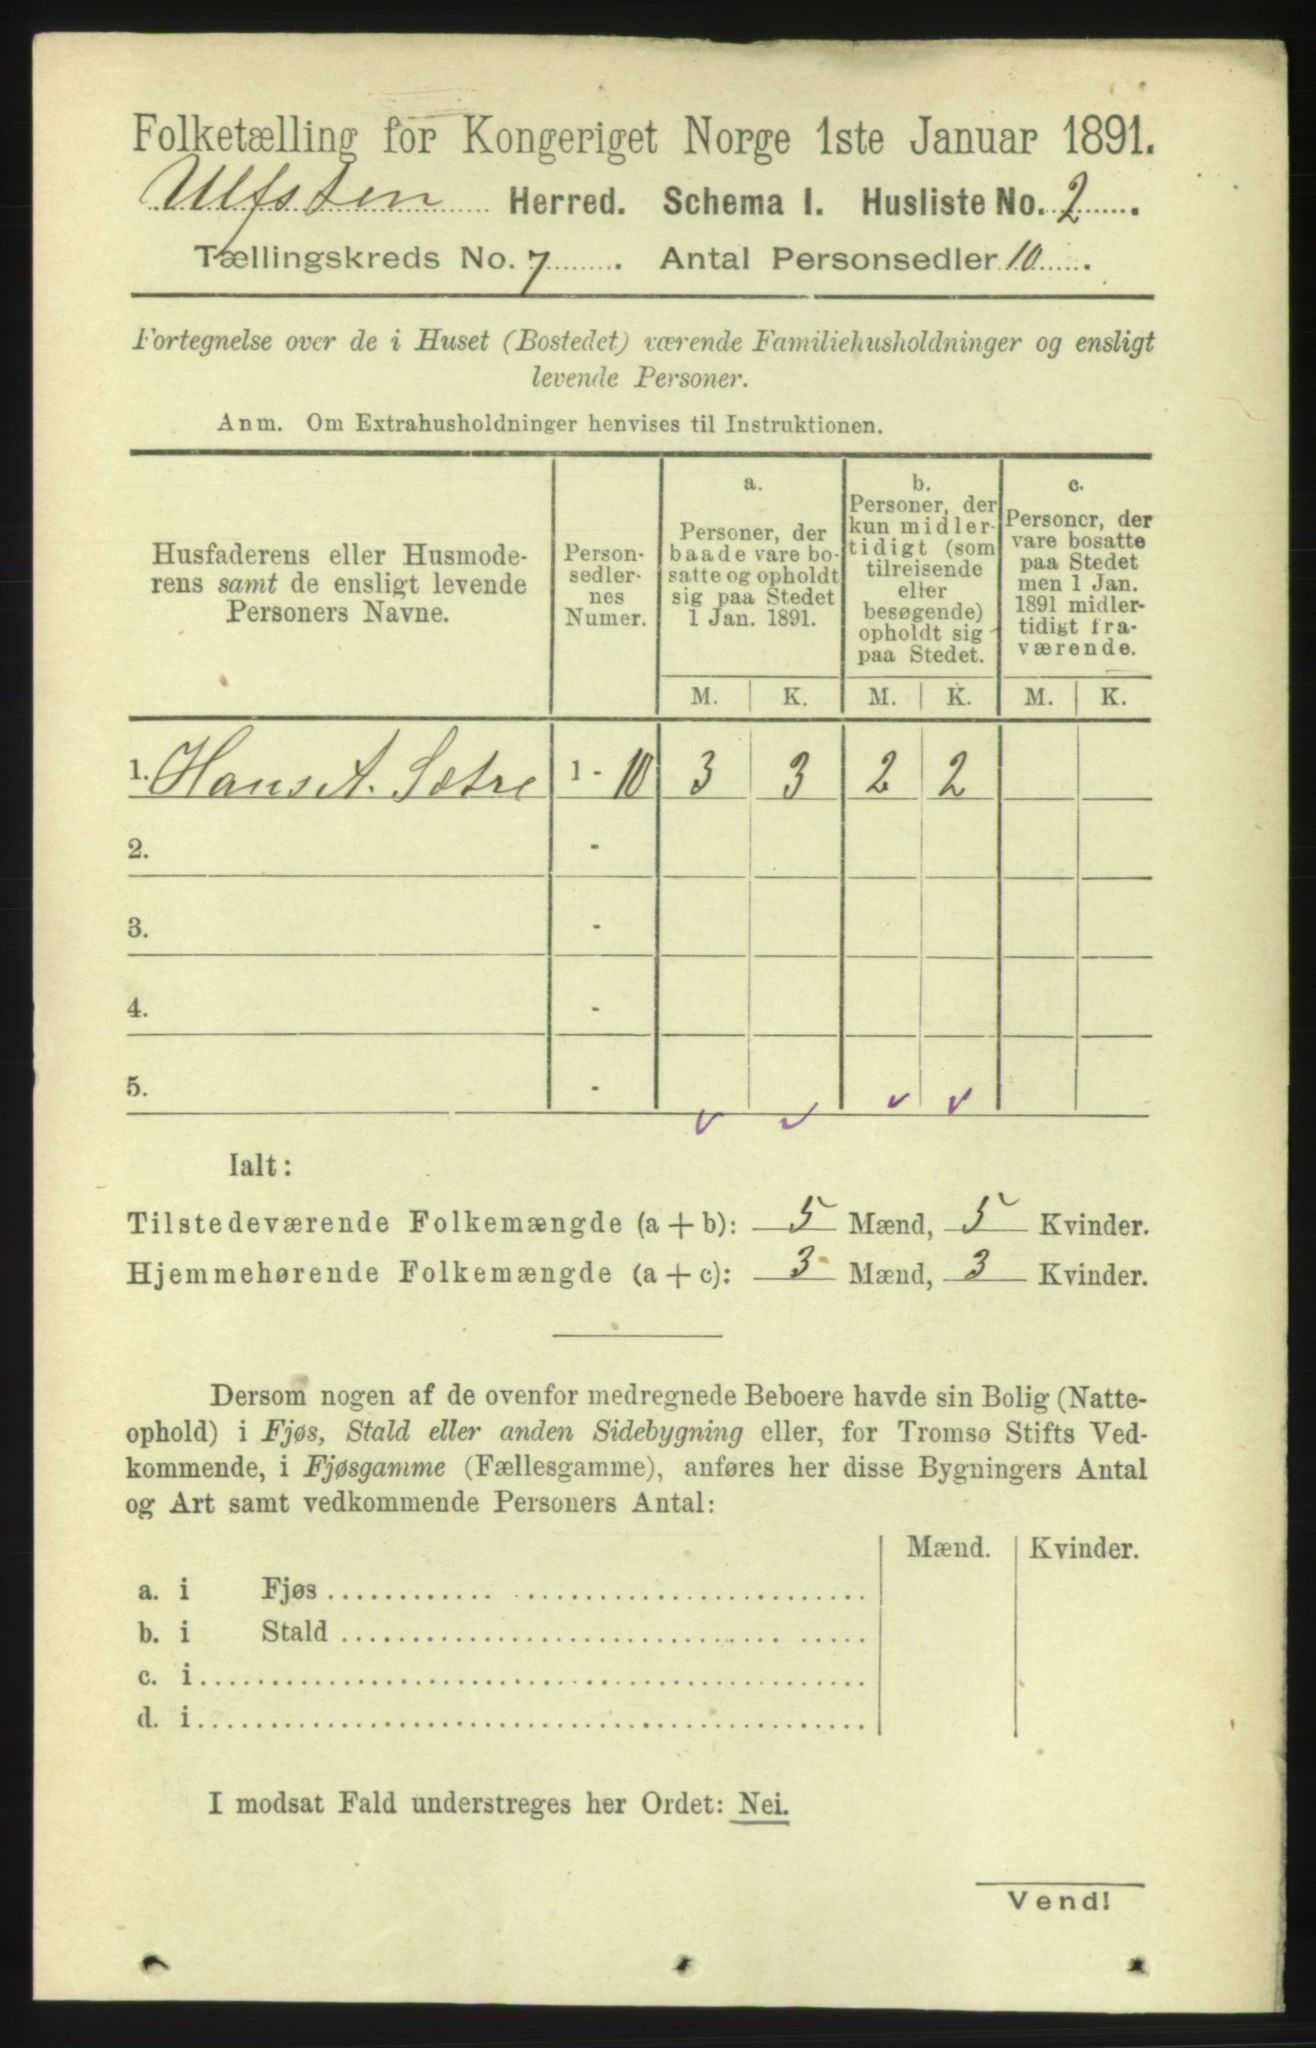 Folketælling for Kongeriget Norge 1ste Januar 1891.
Ulfsten Herred. Schema I. Husliste No. 2
Tællingskreds No. 7. Antal Personsedler 10.
Fortegnelse over de i Huset (Bostedet) værende Familiehusholdninger og ensligt
levende Personer.
Anm. Om Extrahusholdninger henvises til Instruktionen.
Husfaderens eller Husmode-
rens samt de ensligt levende
Personers Navne.
Person-
sedler-
nes
Numer.
a.
Personer, der
baade vare bo-
satte og opholdt
sig paa Stedet
1 Jan. 1891.
b.
Personer, der
kun midler-
tidigt (som
tilreisende
eller
besøgende)
opholdt sig
paa Stedet.
c.
Personer, der
vare bosatte
paa Stedet
men 1 Jan.
1891 midler-
tidigt fra-
værende.
M. K. M. K. M. K.
1. Hans A. Sætre 1 - 10 3 3 2 2
2. -
3. -
4. -
5. -
Ialt:
Tilstedeværende Folkemængde (a + b): 5 Mænd, 5 Kvinder.
Hjemmehørende Folkemængde (a + c): 3 Mænd, 3 Kvinder.
Dersom nogen af de ovenfor medregnede Beboere havde sin Bolig (Natte-
ophold) i Fjøs, Stald eller anden Sidebygning eller, for Tromsø Stifts Ved-
kommende, i Fjøsgamme (Fællesgamme), anføres her disse Bygningers Antal
og Art samt vedkommende Personers Antal:
Mænd. Kvinder.
a. i Fjøs
b. i Stald
c. i
d. i
I modsat Fald understreges her Ordet: Nei.
Vend!